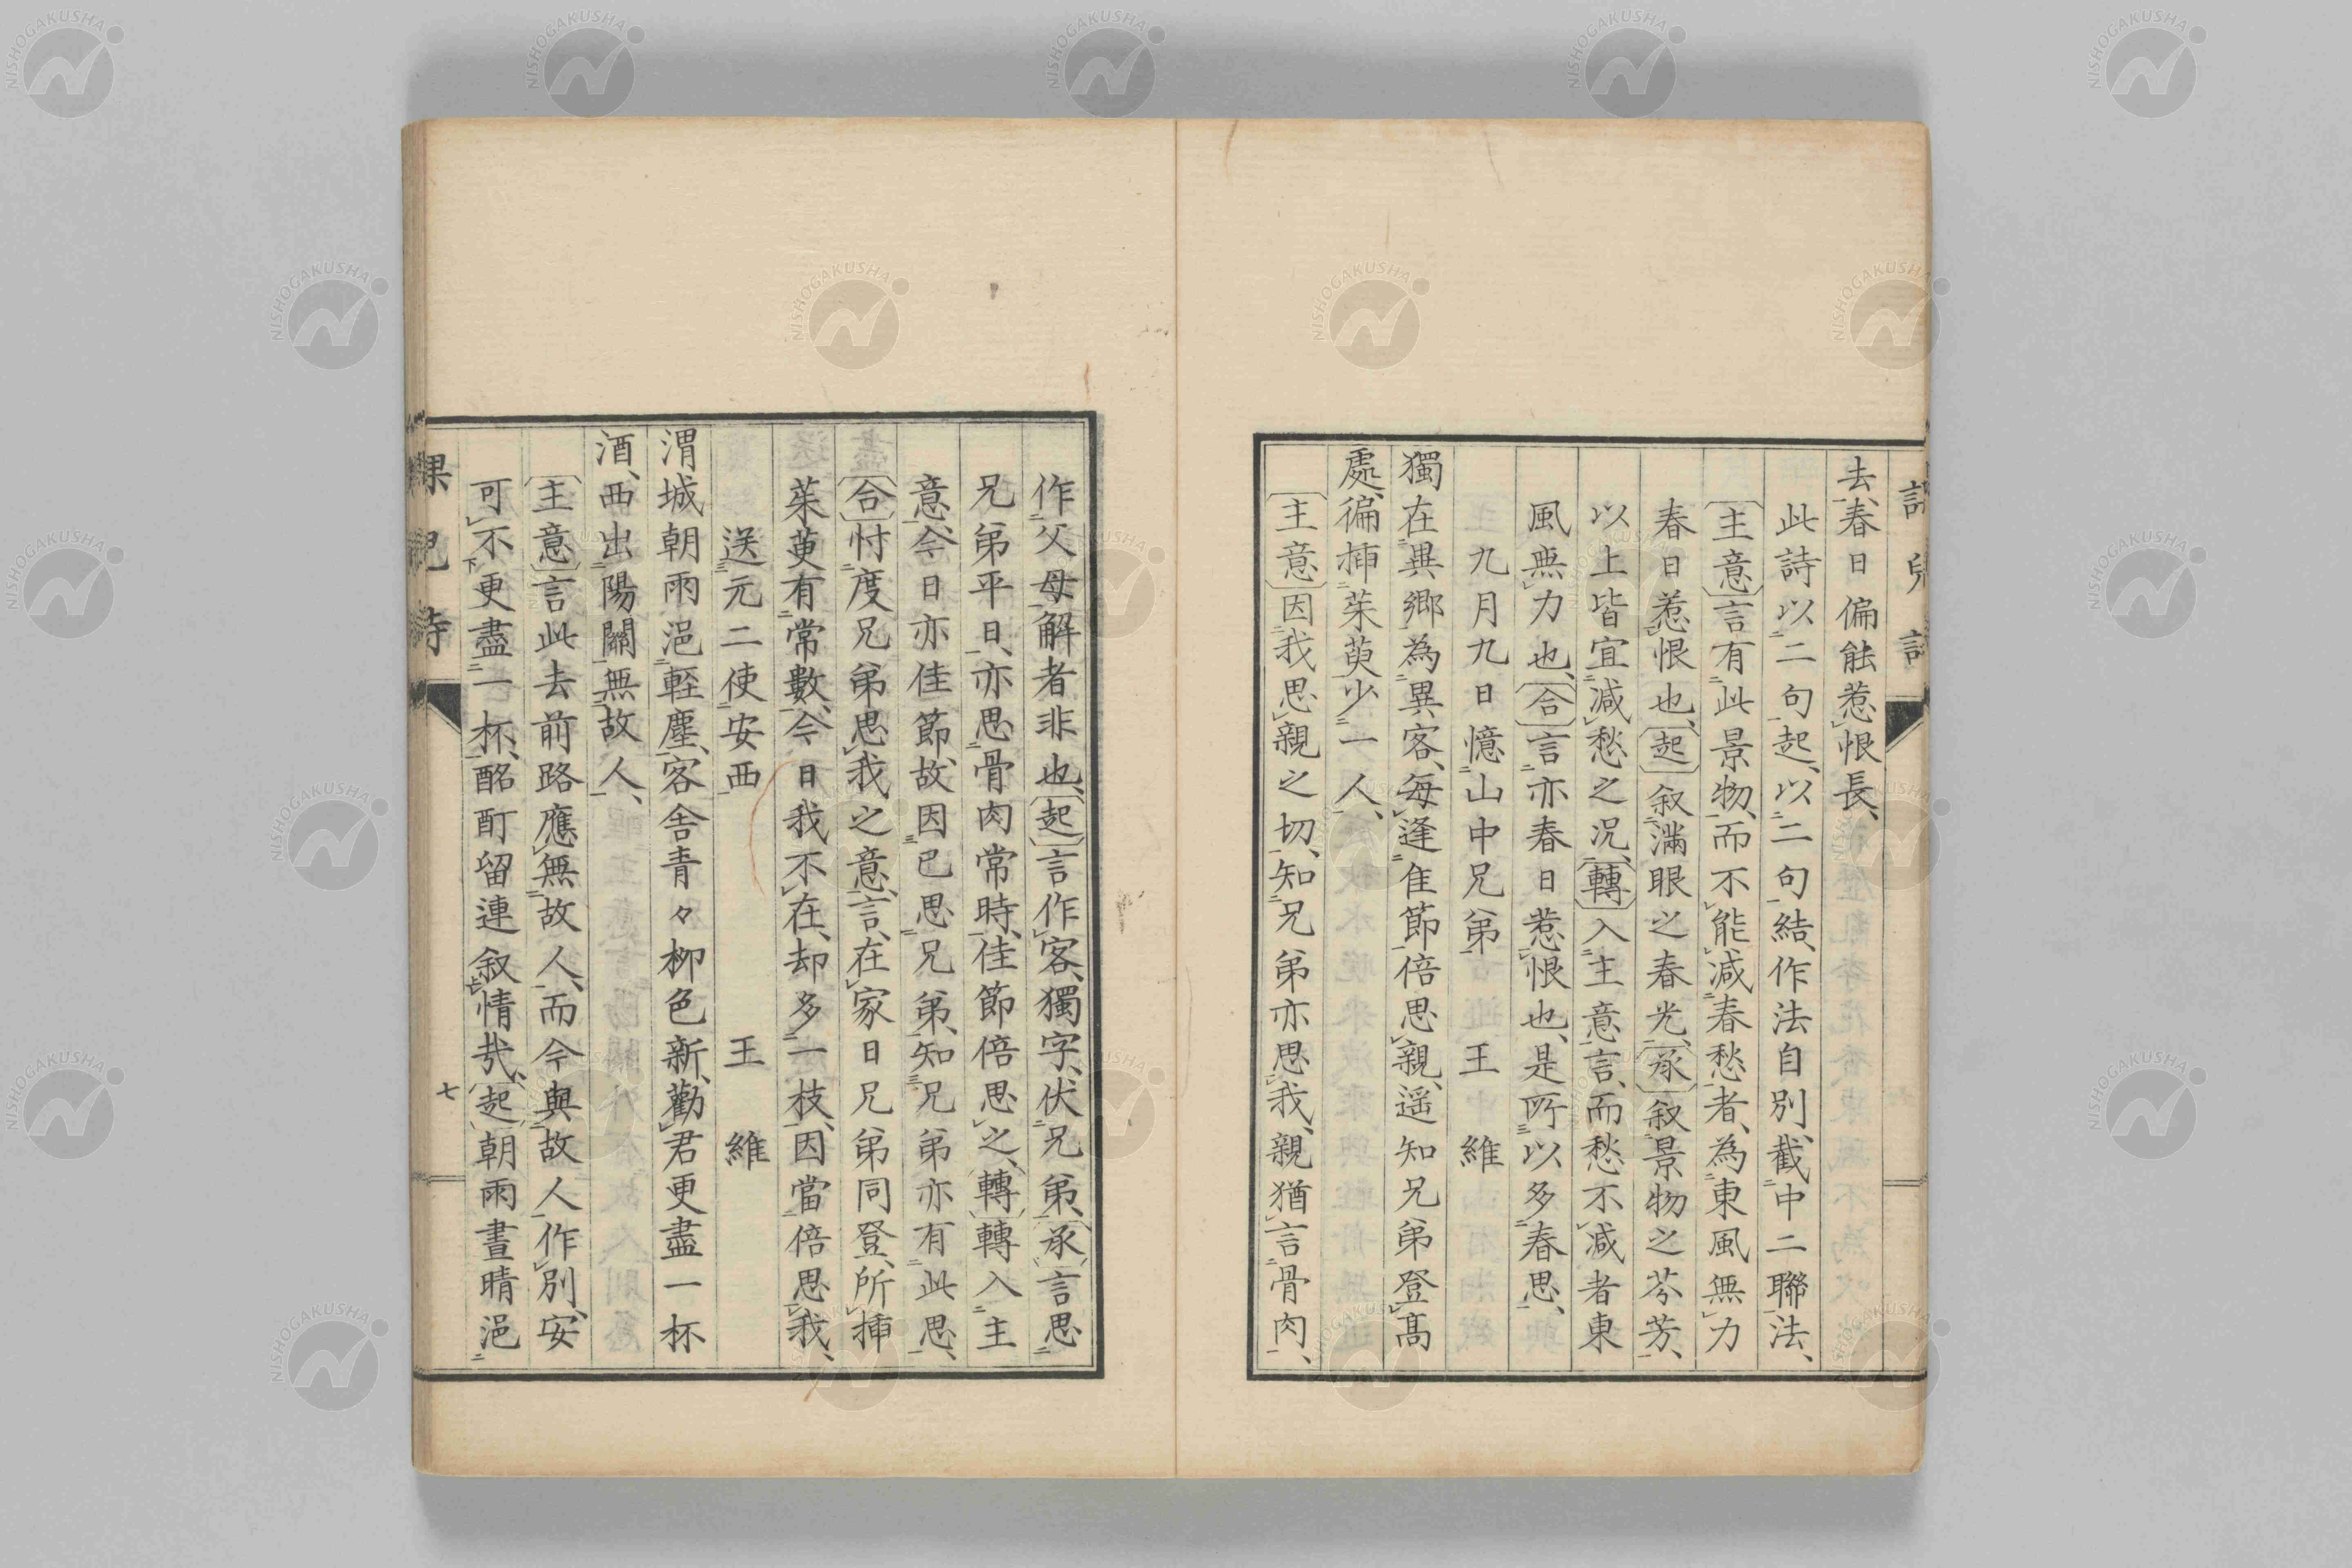 課兒詩
去、春日偏能惹恨長、
此詩以二句起、以二句結、作法自別、截中二聯法、
〔主意〕言有此景物、而不能減春愁者、為東風無力
春日惹恨也、〔起〕叙滿眼之春光、〔承〕叙景物之芬芳、
以上皆宜減愁之况、〔轉〕入主意言、而愁不減者東
風無力也、〔合〕言亦春日惹恨也、是所以多春思、
九月九日憶山中兄弟　王　維
獨在異鄉為異客、每逢佳節倍思親、遥知兄弟登髙
處、徧挿茱萸少一人、
〔主意〕因我思親之切、知兄弟亦思我、親猶言骨肉、
作父母解者非也、〔起〕言作客、獨字、伏兄弟、〔承〕言思
兄弟平日、亦思骨肉常時、佳節倍思之、〔轉〕轉入主
意、今日亦佳節、故因已思兄弟、知兄弟亦有此思、
〔合〕忖度兄弟思我之意、言、在家日兄弟同登、所挿
茱萸有常數、今日我不在、却多一枝、因當倍思我、
送元二使安西　王　維
渭城朝雨浥輕塵、客舎青々柳色新、勸君更盡一杯
酒、西出陽關無故人、
〔主意〕言此去前路應無故人、而今與故人作別、安
可不更盡一杯、酩酊留連叙情哉、〔起〕朝雨晝晴浥
課兒詩
七
NISHOGAKUSHA